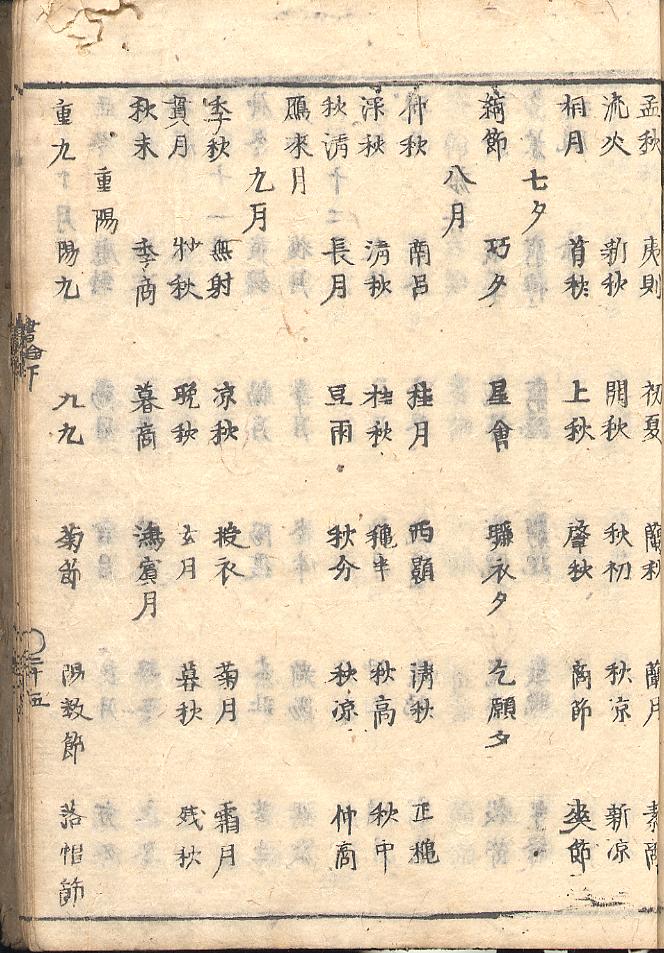 孟秋 夷則 初夏 蘭秋 蘭月 素商
流火 新秋 開秋 秋初 秋凉 新凉
桐月 首秋 上秋 肇秋 商節 爽節
七夕
綺節 巧夕 星會 曝衣夕 乞願夕
八月
仲秋 南呂 桂月 西顥 淸秋 正秋
深秋 清秋 桂秋 龝半 秋高 秋中
秋清 長月 豆雨 秋分 秋凉 仲商
鴈來月
九月
季秋 無射 凉秋 授衣 菊月 霜月
貿月 杪秋 晩秋 玄月 暮秋 残秋
秋末 季商 暮商 鴻賓月
重陽
重九 陽九 九九 菊節 陽数節 落帽節
書翰下
二十五